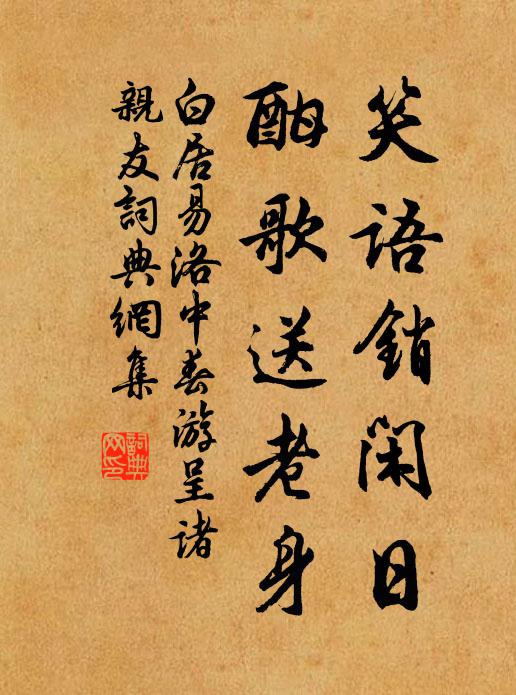 笑語銷閑日
酣歌送老身
白居易洛中春游呈诸
親友詞典網集
詞典
网印